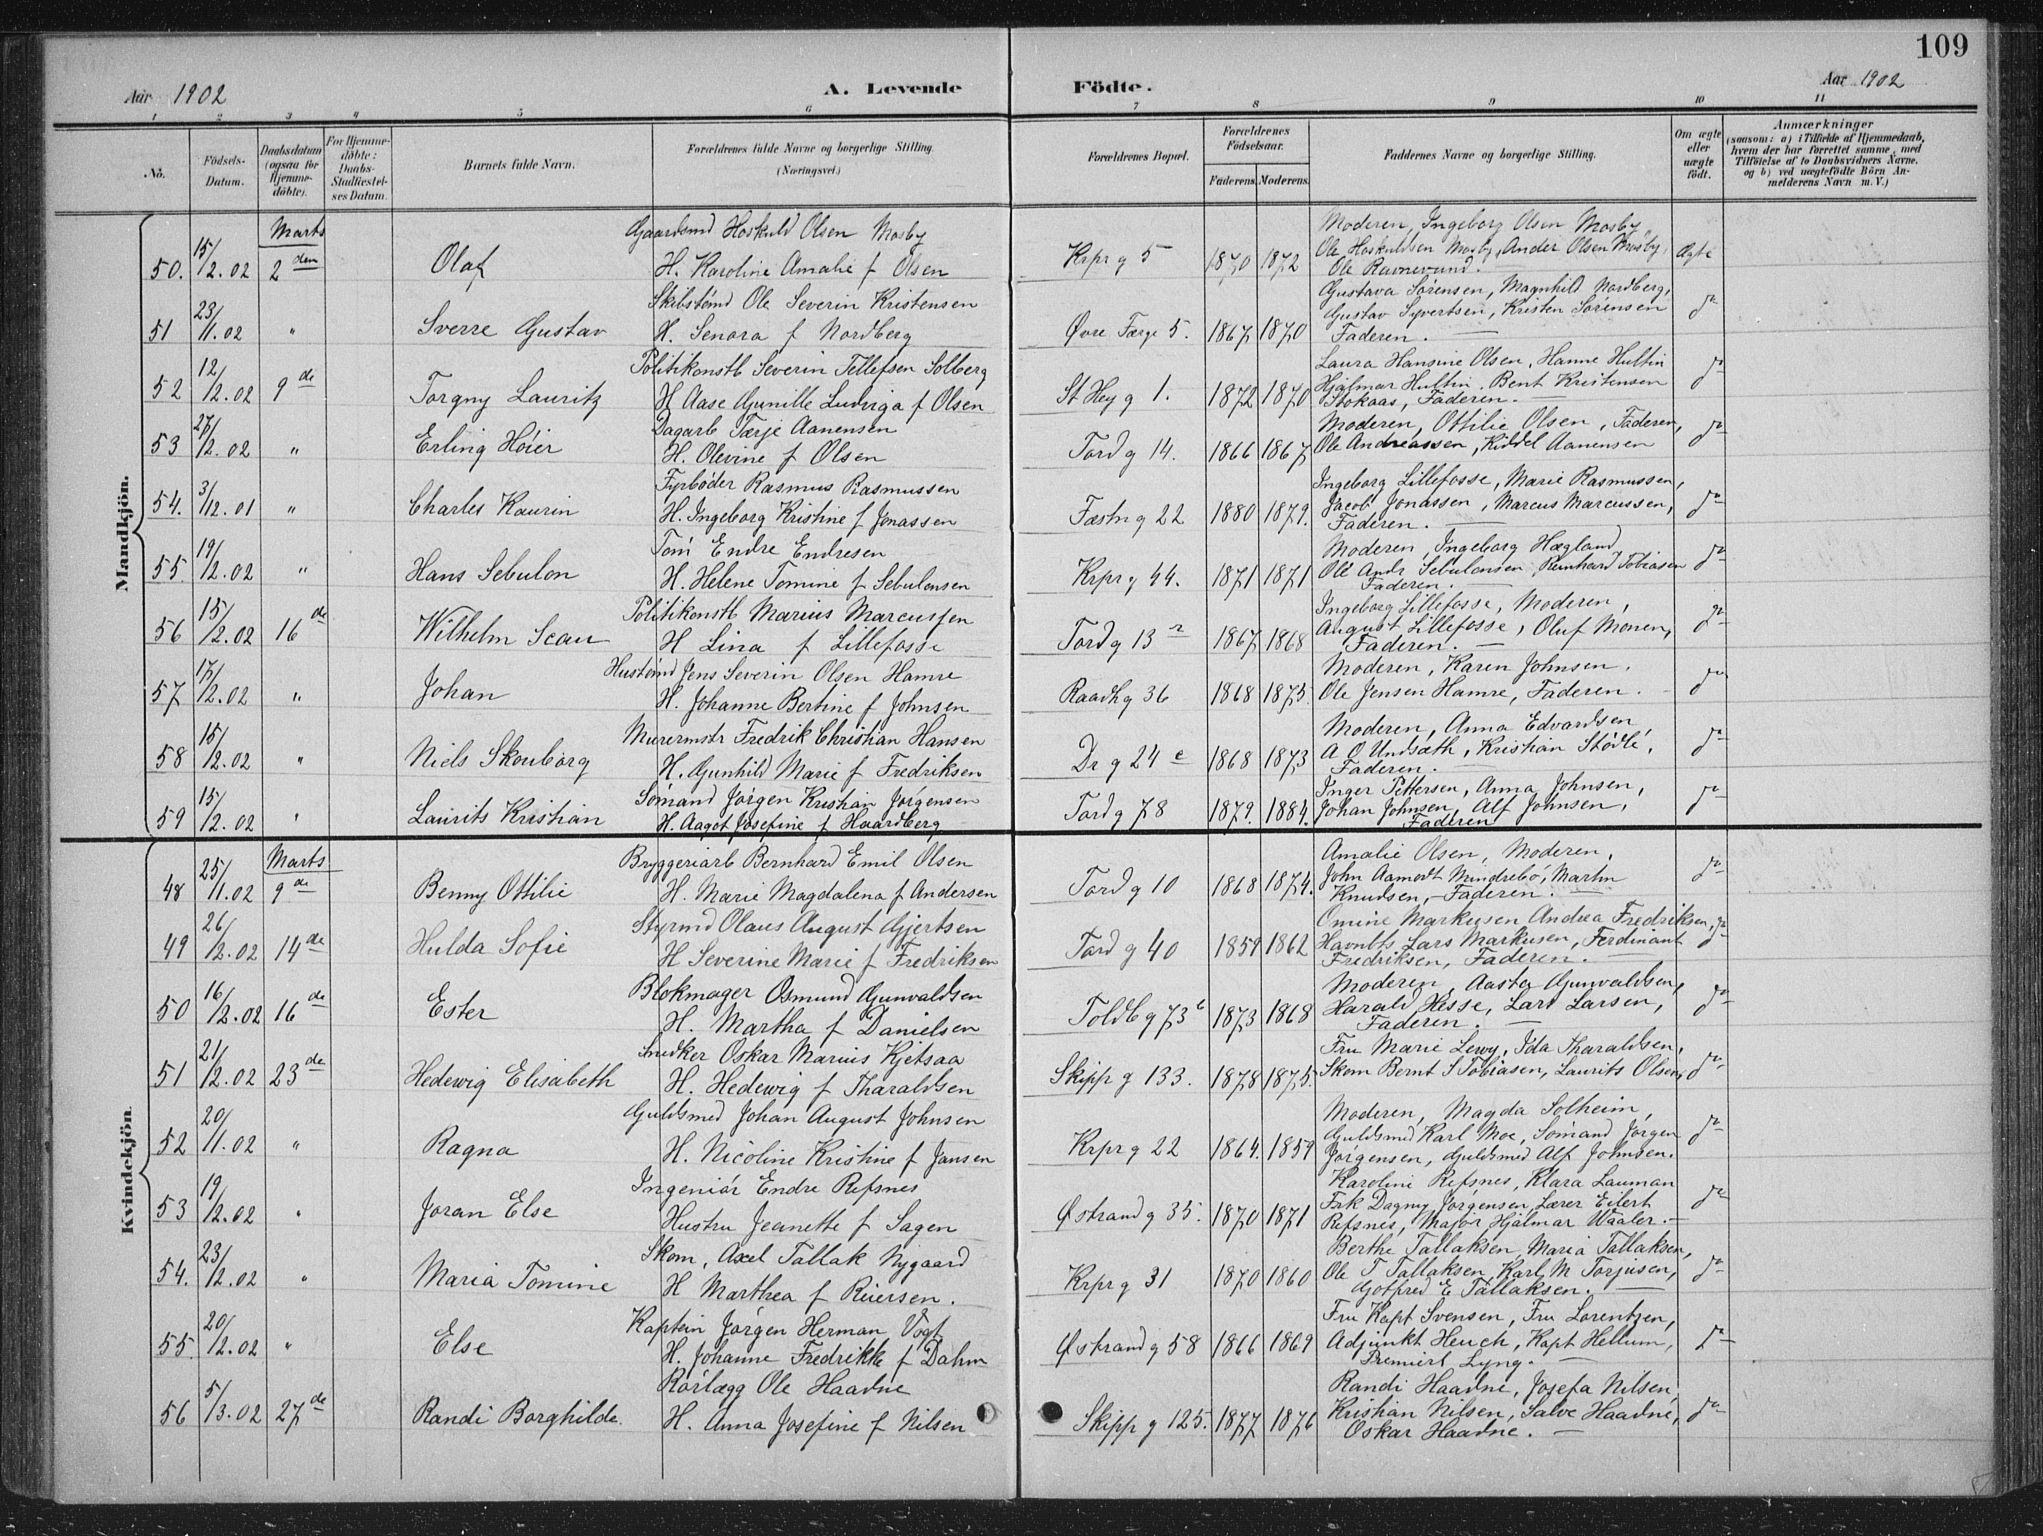 109
Aar 1902 A. Levende Födte. Aar 1902
1 2 3 4 5 6 7 8 9 10 11
No. Födsels-Datum. Daabsdatum (ogsaa for Hjemme-döbte). For Hjemme-döbte: Daabs-Stadfæstel-ses Datum. Barnets fulde Navn. Forældrenes fulde Navne og borgerlige Stilling. (Næringsvei.) Forældrenes Bopæl. Forældrenes Födselsaar. Faderens. Moderens. Faddernes Navne og borgerlige Stilling. Om ægte eller uægte födt. Anmærkninger (saasom: a) i Tilfælde af Hjemmedaab, hvem der har forrettet samme, med Tilföielse af to Daabsvidners Navne. og b) ved uægtefödte Börn An-melderens Navn m. V.)
Mandkjön.
Marts
Gaardmd Hoskuld Olsen Mosby Moderen, Ingeborg Olsen Mosby
50. 15/2.02 2den Olaf H. Karoline Amalie f Olsen Krprg 5 1870 1872 Ole Hoskuldsen Mosby, Ander Olsen Mosby, Ægte
Ole Ravnevand.
Skibstømd Ole Severin Kristensen Gustava Sørensen, Magnhild Nordberg,
51 23/11.02 " Sverre Gustav H. Senora f Nordberg Øvre Færge 5. 1867 1870 Gustav Syvertsen, Kristen Sørensen do
Faderen.
Politikonstb Severin Tellefsen Solberg Laura Hansine Olsen, Hanne Hultin
52 12/12.02 9de Torgny Lauritz H Aase Gunille Ludviga f Olsen St Hey g 1. 1872 1870 Hjalmar Hultin. Bent Kristensen do
Stokaas, Faderen.
Dagarb Tarje Aanensen Moderen, Ottilie Olsen, Faderen,
53 27/12.02 " Erling Höier H. Olevine f Olsen Tord g 14. 1866 1867 Ole Andreassen, Kiddel Aanensen do
Fyrbøder Rasmus Rasmussen Ingeborg Lillefosse, Marie Rasmussen,
54. 3/12.01 " Charles Kaurin H. Ingeborg Kristine f Jonassen Fæstn g 22 1880 1879. Jacob Jonassen, Marcus Marcussen, do
Faderen.
Tøm Endre Endresen Moderen, Ingeborg Hægland
55. 19/12.02 " Hans Sebulon H. Helene Tomine f Sebulonsen Krpr g 44. 1871 1871 Ole Andr Sebulonsen, Reinhard Tobiasen do
Faderen.
Politikonstb Marius Marcussen Ingeborg Lillefosse, Moderen,
56 15/12.02 16de Wilhelm Scau H Lina f Lillefosse Tord g 13 1867 1868 August Lillefosse, Oluf Monen, do
Faderen.
Hustømd Jens Severin Olsen Hamre Moderen, Karen Johnsen.
57 17/12.02 " Johan H. Johanne Bertine f Johnsen Raadh g 36 1868 1875. Ole Jensen Hamre, Faderen. do
Murermstr Fredrik Christian Hansen Moderen, Anna Edvardsen,
58 15/12.02 " Niels Skouborg H. Gunhild Marie f Fredriksen Dr g 24 c 1868 1873 A O Undsæth, Kristian Stødle, do
Faderen.
Sømand Jørgen Kristian Jørgensen Inger Pettersen, Anna Johnsen,
59 15/12.02 " Laurits Kristian H. Aagot Josefine f Haardberg Tord g 78 1879. 1884. Johan Johnsen, Alf Johnsen, do
Faderen
Kvindekjön.
Marts
Bryggeriarb Bernhard Emil Olsen Amalie Olsen, Moderen,
48 25/11.02 9de Benny Ottilie H. Marie Magdalena f Andersen Tord g 10 1868 1874. John Aamodt Mindrebø, Martin do
Knudsen, Faderen.
Styrmd Olaus August Gjertsen Omine Markusen Andrea Fredriksen,
49 26/12.02 14de Hulda Sofie H Severine Marie f Fredriksen Tord g 40 1859 1862 Havnbts Lars Markusen, Ferdinant do
Fredriksen, Faderen.
Blokmager Osmund Gunvaldsen Moderen, Aasta Gunvaldsen,
50 16/12.02 16de Ester H. Martha f Danielsen Toldb g 73 b 1873 1868 Harald Hesse, Lars Larsen, do
Faderen.
Snedker Oskar Marius Kjetsaa Fru Marie Lewy, Ida Tharaldsen,
51 21/12.02 23de Hedewig Elisabeth H. Hedewig f Tharaldsen Skipp g 133. 1878 1875. Skom Bernt S Tobiasen, Laurits Olsen, do
Guldsmed Johan August Johnsen Moderen, Magda Solheim,
52 20/11.02 " Ragna H. Nicoline Kristine f Jansen Krpr g 22 1864. 1859 Guldsmed Karl Moe, Sømand Jørgen do
Jørgensen, Guldsmed Alf Johnsen.
Ingeniör Endre Refsnes Karoline Refsnes, Klara Lauman
53 19/12.02 " Joran Else Hustru Jeanette f Sagen Østrand g 35. 1870 1871 Frk Dagny Jørgensen, Lærer Eilert do
Refsnes, Major Hjalmar Waaler.
Skom, Axel Tallak Nygaard Berthe Tallaksen, Maria Tallaksen,
54. 23/12.02 " Maria Tomine H Marthea f Reiersen. Krpr g 31 1870 1860 Ole T Tallaksen, Karl M Torjusen, do
Gotfred E Tallaksen.
Kaptein Jørgen Herman Vogt Fru Kapt Svensen, Fru Lorentzen,
55. 20/12.02 " Else H. Johanne Fredrikke f Dahm Østrand g 58 1866 1869 Adjunkt Heuch, Kapt Hellum, do
Premierl Lyng.
Rørlægg Ole Haadne Randi Haadne, Josefa Nilsen,
56 5/3.02 27de Randi Borghilde. H. Anna Josefine f Nilsen Skipp g 125. 1877 1876 Kristian Nilsen, Salve Haadne, do
Oskar Haadne.